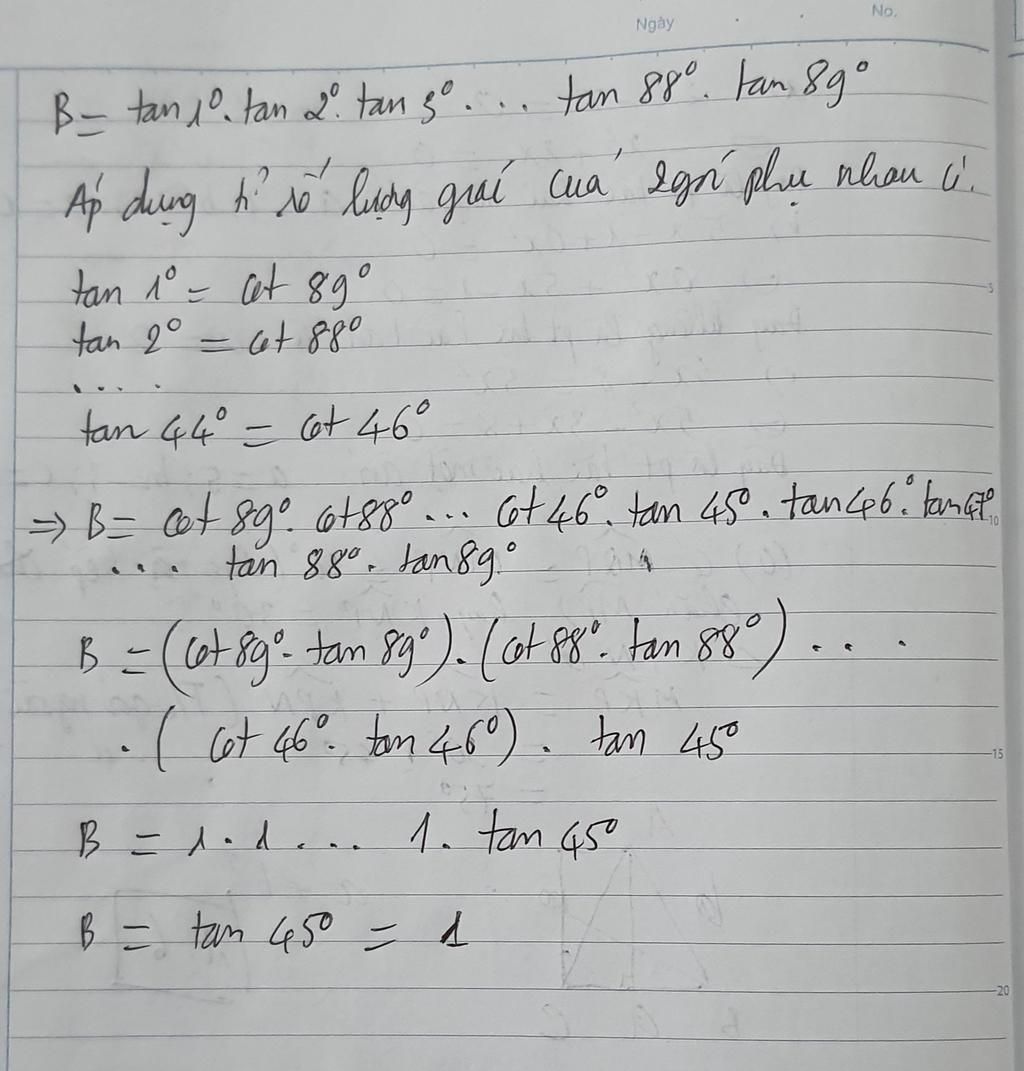 Ngày
No.
B = tan 1°. tan 2°. tan 3°. ... tan 88°. tan 89°
Áp dụng tỉ số lượng giác của 2 góc phụ nhau có.
tan 1° = cot 89°
tan 2° = cot 88°
....
tan 44° = cot 46°
5
⇒ B = cot 89°. cot 88° ... cot 46°. tan 45°. tan 46°. tan 47°
10
.... tan 88°. tan 89°
B = (cot 89°. tan 89°). (cot 88°. tan 88°) ...
. (cot 46°. tan 46°). tan 45°
15
B = 1. 1. ... 1. tan 45°
B = tan 45° = 1
20